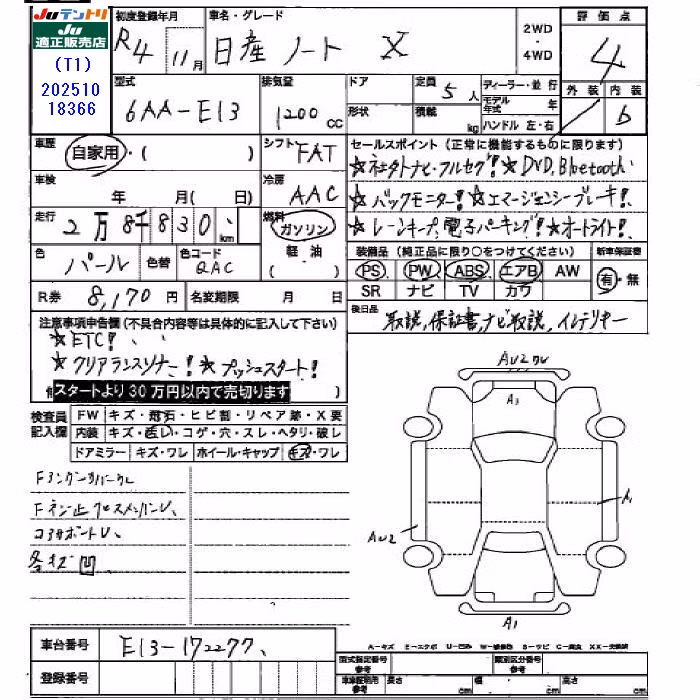 JUテントリ
JU
適正販売店
(T1)
202510
18366
初度登録年月
R4 11月
車名・グレード
日産 ノート X
2WD
・
4WD
評価点
4
外装 内装
b
型式
6AA-E13
排気量
1200 cc
ドア
形状
定員 5 人
積載 kg
ディーラー・並行
モデル年式 年
ハンドル 左・右
車歴
自家用・( )
シフト FAT
車検
年 月( 日)
冷房 AAC
走行
2万8千830 km
燃料
ガソリン
軽油
( )
色 パール
色替
色コード
QAC
R券 8,170 円
名変期限 月 日
セールスポイント (正常に機能するものに限ります)
☆社外ナビ・フルセグ!☆DVD,Bluetooth
☆バックモニター!☆エマージェンシーブレーキ!
☆レーンキープ,電子パーキング!☆オートライト!
装備品 (純正品に限り○をつけてください)
新車保証書
PS PW ABS エアB AW
SR ナビ TV カワ
有・無
後日品
取説,保証書,ナビ取説,インテリキー
注意事項申告欄 (不具合内容等は具体的に記入して下さい)
☆ETC!
☆クリアランスソナー!☆プッシュスタート!
スタートより30万円以内で売切ります
検査員
記入欄
FW キズ・飛石・ヒビ割・リペア跡・X要
内装 キズ・汚レ・コゲ・穴・スレ・ヘタリ・破レ
ドアミラー キズ・ワレ ホイール・キャップ キズ・ワレ
各キズ凹
AU2
A3
A1
AU2
A1
車台番号 E13-172277
登録番号
A-キズ E-エクボ U-凹み W-補修跡 S-サビ C-腐食 XX-交換済
型式指定番号
参考
類別区分番号
参考
車車証明用
参考
長さ cm 幅 cm 高さ cm